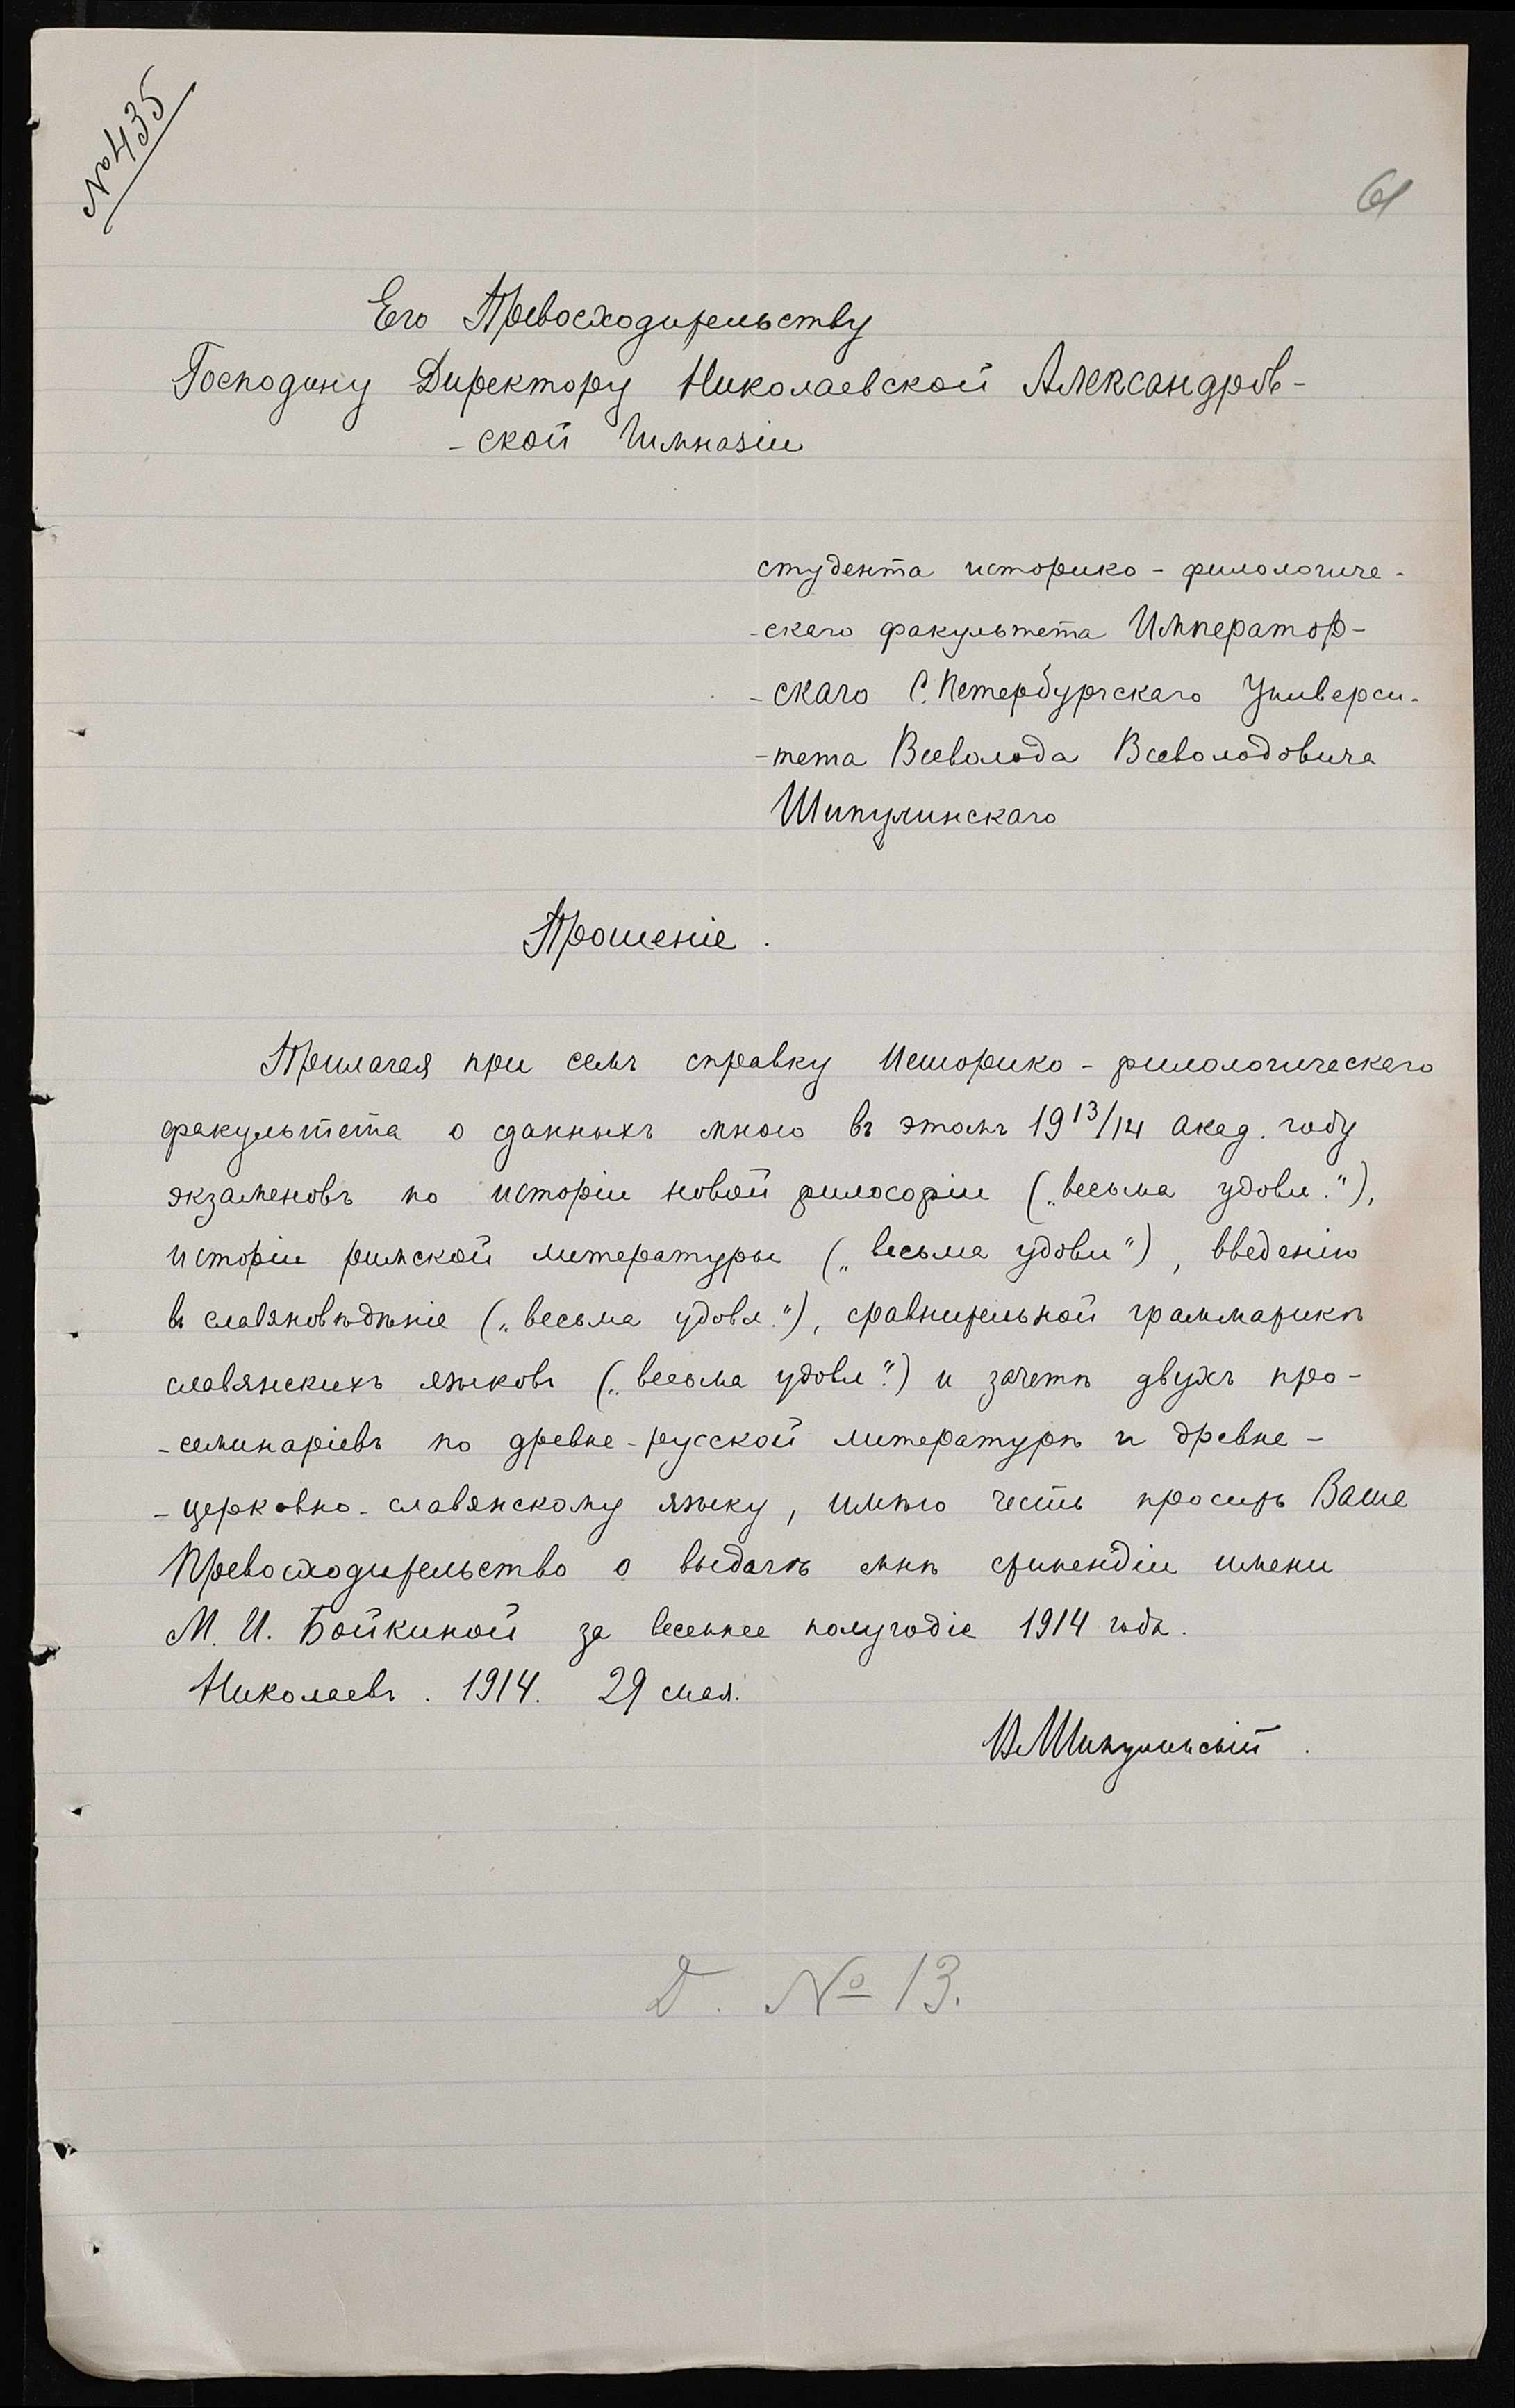 № 435
61
Его Превосходительству
Господину Директору Николаевской Александров-
- ской Гимназіи
студента историко - филологиче-
-скаго факультета Император-
- скаго С. Петербургскаго Универси-
-тета Всеволода Всеволодовича
Шипулинскаго
Прошеніе.
Прилагая при семъ справку Историко - филологическаго
факультета о сданныхъ мною въ этомъ 1913/14 акад. году
экзаменовъ по исторіи новой философіи („весьма удовл."),
исторіи римской литературы („весьма удовл"), введенію
въ славяновѣдѣніе („весьма удовл."), сравнительной грамматикѣ
славянскихъ языковъ („весьма удовл.") и зачетѣ двухъ про-
- семинаріевъ по древне-русской литературѣ и древне-
- церковно-славянскому языку, имѣю честь просить Ваше
Превосходительство о выдачѣ мнѣ стипендіи имени
М. И. Бойкиной за весеннее полугодіе 1914 года.
Николаевъ. 1914. 29 мая.
В Шипулинскій.
Д. № 13.